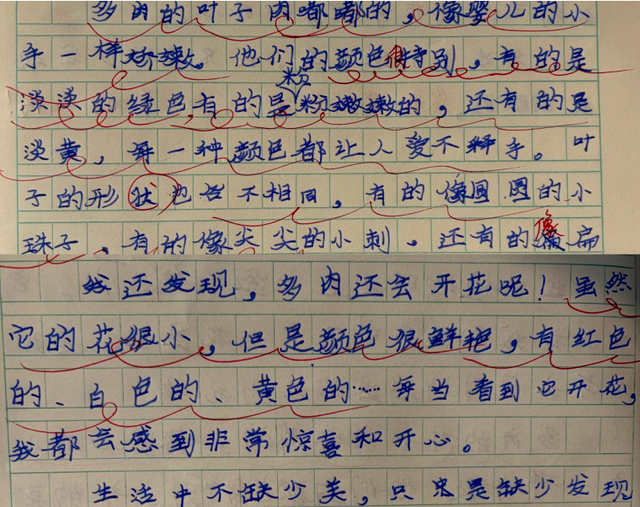 多肉的叶子肉嘟嘟的，像婴儿的小
手一样娇嫩。他们的颜色很特别，有的是
淡淡的绿色，有的是粉粉嫩嫩的，还有的是
淡黄，每一种颜色都让人爱不释手。叶
子的形状也各不相同，有的像圆圆的小
珠子，有的像尖尖的小刺，还有的像扁
我还发现，多肉还会开花呢！虽然
它的花很小，但是颜色很鲜艳，有红色
的、白色的、黄色的……每当看到它开花，
我都会感到非常惊喜和开心。
生活中不缺少美，只是缺少发现